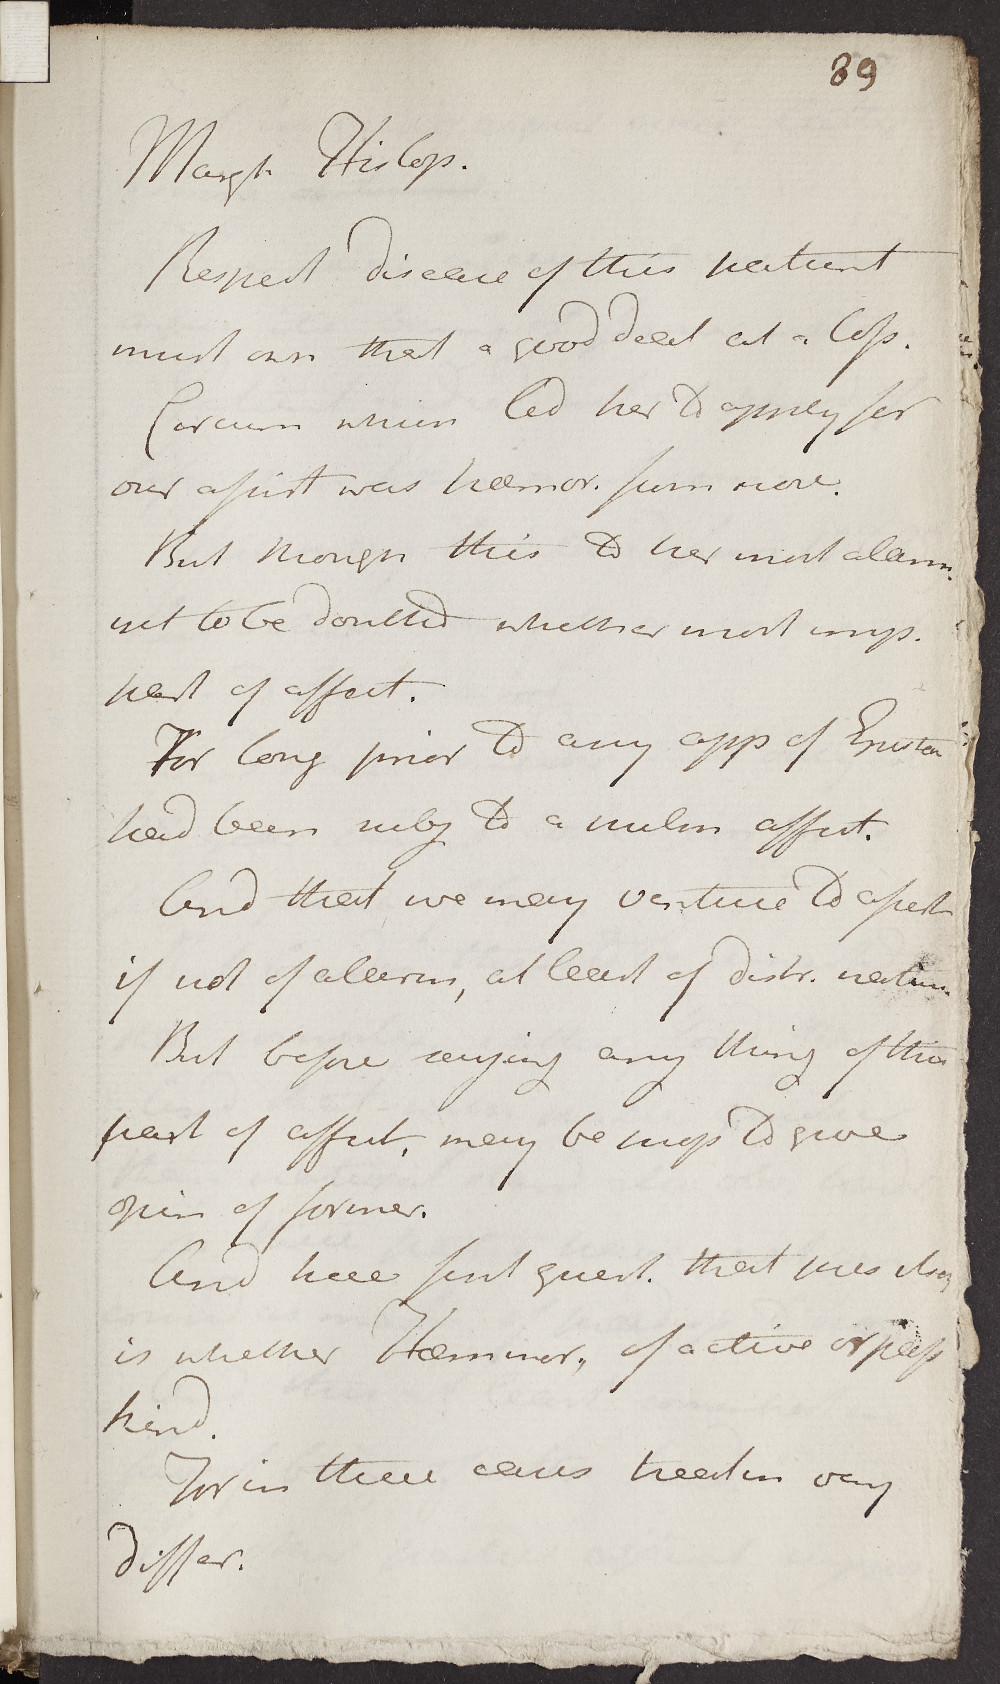 89
Margt Hislop.
Respect disease of this patient
must own that a good deal at a loss.
Circum which led her to apply for
our assist was hæmor. from nose.
But though this to her most alarm.
not to be doubted whether most imp.
part of affect.
For long prior to any app of Epistax
had been subj to a pulm affect.
And that we may venture to assert
if not of alarm, at least of distr. nature
But before saying any thing of this
part of affect, may be prop to give
opin of former.
And here first quest. that pres itself
is whether Hæmmor, of active or pass
kind.
For in these cases treatm very
differ.